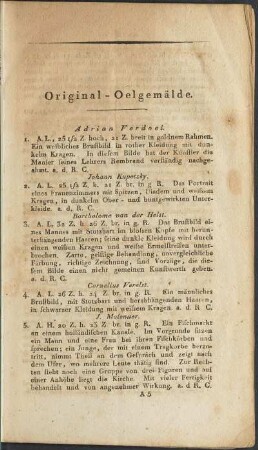 Original-Oelgemälde.
Adrian Verdoel.
1. A. L., 25 1/2 Z. hoch, 21 Z. breit in goldnem Rahmen.
Ein weibliches Brustbild in rother Kleidung mit dun-
kelm Kragen. In diesem Bilde hat der Künstler die
Manier seines Lehrers Rembrand verständig nachge-
ahmt. a. d. R. C.
Johann Kupetzky.
2. A. L. 25 1/2 Z. h. 21 Z. br. in g. R. Das Portrait
eines Frauenzimmers mit Spitzen, Fledern und weissem
Kragen, in dunkelm Ober- und buntgewirkten Unter-
kleide. a. d. R. C.
Bartholome van der Helst.
3. A. L. 32 Z. h. 26 Z. br. in g. R. Das Brustbild ei-
nes Mannes mit Stutzbart im blosen Kopfe mit her-
unterhangenden Haaren; seine dunkle Kleidung wird durch
einen weißen Kragen und weiße Ermel unter-
brochen. Zarte, gefällige Behandlung, unvergleichliche
Färbung, richtige Zeichnung, sind Vorzüge, die die-
sem Bilde einen nicht gemeinen Kunstwerth geben.
a. d. R. C.
Cornelius Verelst.
4. A. L. 26 Z. h. 24 Z. br. in g. R. Ein männliches
Brustbild, mit Stutzbart und herabhängenden Haaren,
in schwarzer Kleidung mit weißem Kragen. a. d. R. C.
I. Molenaer.
5. A. H. 20 Z. h. 25 Z. br. in g. R. Ein Fischmarkt
an einem holländischen Kanale. Im Vorgrunde stehen
ein Mann und eine Frau bei ihren Fischkörben und
sprechen; ein Junge, der mit einem Tragkorbe herzu-
tritt, nimmt Theil an dem Gespräch und zeigt nach
dem Ufer, wo mehrere Leute thätig sind. Zur Rech-
ten steht noch eine Gruppe von drei Figuren und auf
einer Anhöhe liegt die Kirche. Mit vieler Fertigkeit
behandelt und von angenehmer Wirkung. a. d. R. C.
A 5